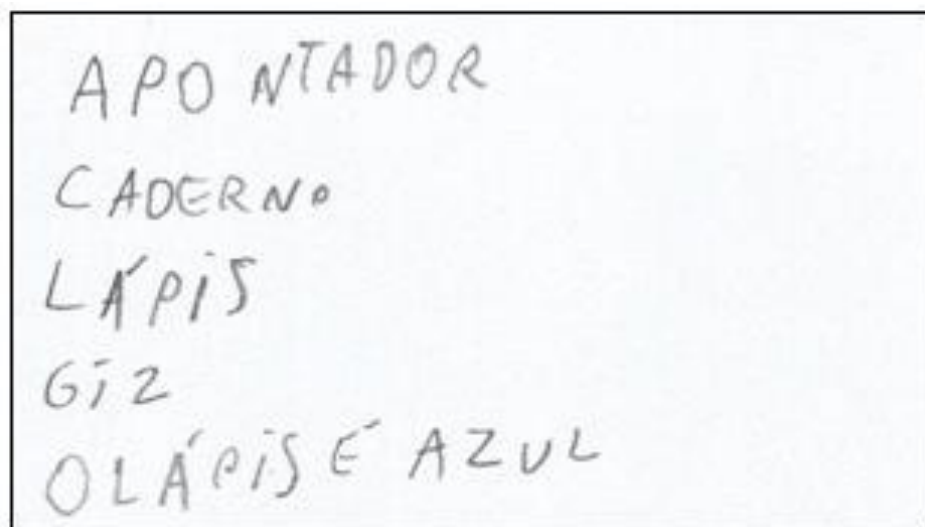 APONTADOR
CADERNO
LÁPIS
GIZ
O LÁPIS É AZUL